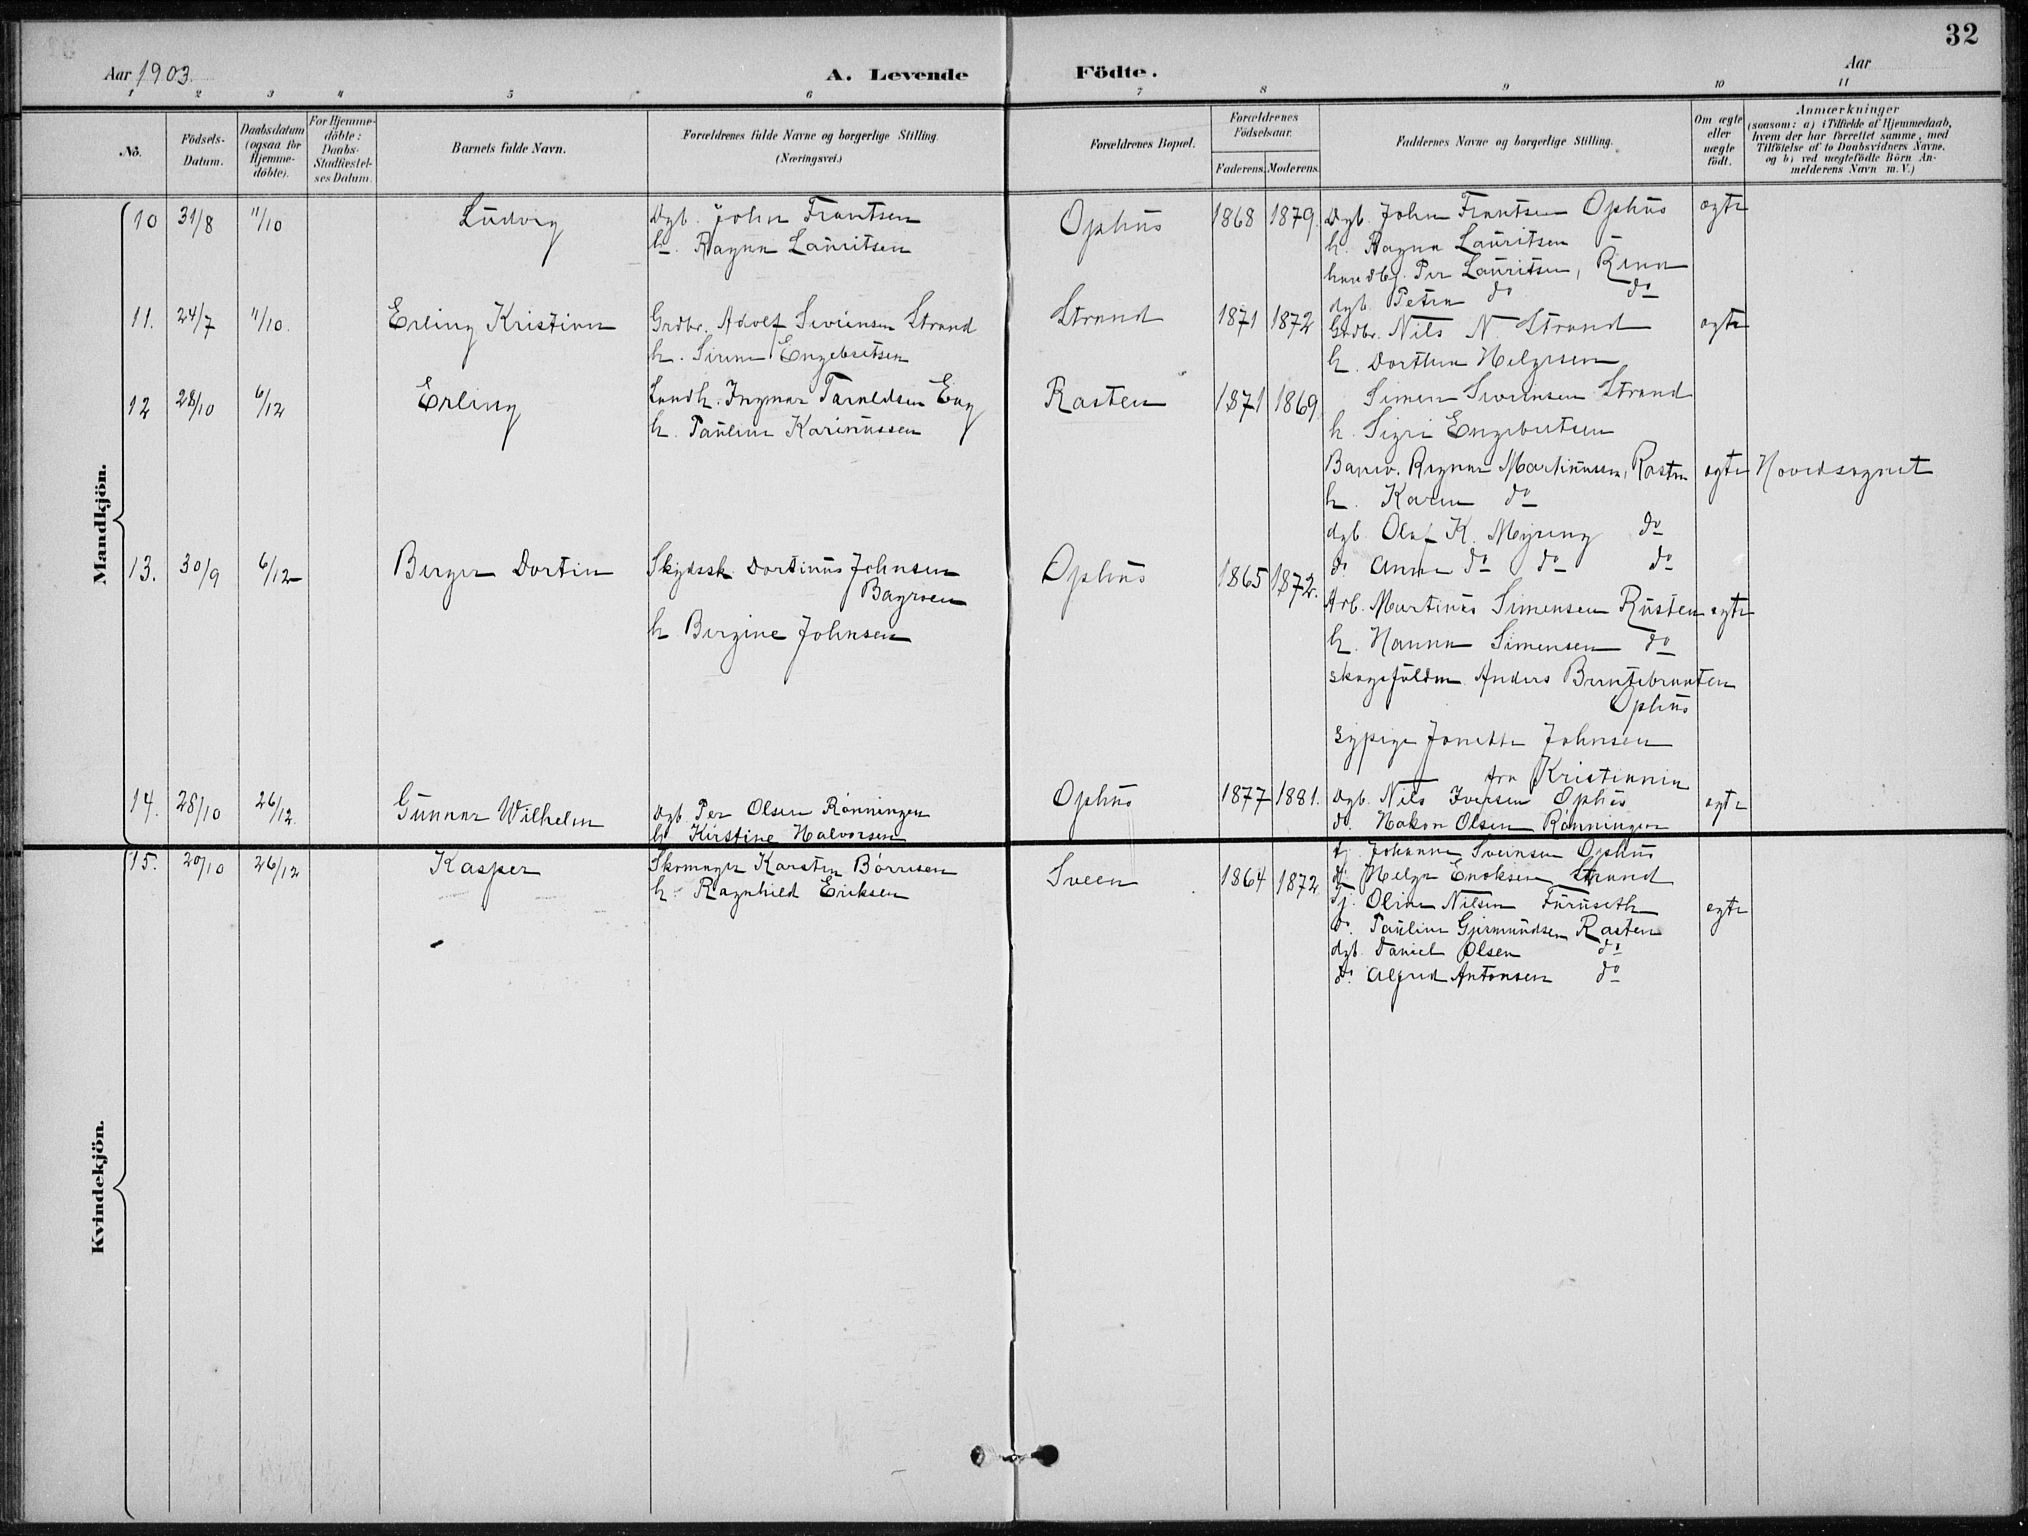 32
Aar 1903. A. Levende Födte. Aar
1 2 3 4 5 6 7 8 9 10 11
No.
Födsels-Datum.
Daabsdatum (ogsaa for Hjemme-döbte).
For Hjemme-döbte: Daabs-Stadfæstel-ses Datum.
Barnets fulde Navn.
Forældrenes fulde Navne og borgerlige Stilling.
(Næringsvei.)
Forældrenes Bopæl.
Forældrenes Födselsaar.
Faderens. Moderens.
Faddernes Navne og borgerlige Stilling.
Om ægte eller uægte födt.
Anmærkninger
(saasom: a) i Tilfælde af Hjemmedaab,
hvem der har forrettet samme, med
Tilföielse af to Daabsvidners Navne,
og b) ved uægtefödte Börn An-
melderens Navn m. V.)
Mandkjön.
10 31/8 11/10 Ludvig
Dgb. John Frantsen
h. Ragna Lauritsen
Ophus 1868 1879.
Dgb. John Frantsen Ophus
h. Ragna Lauritsen
handbg. Per Lauritsen, Rena
dgb. Petra do do
ægte
11. 24/7 11/10. Erling Kristian
Grdbr. Adolf Siversen Strand
h. Sirene Engebretsen
Strand 1871 1872
Grdbr. Nils N. Strand
h. Dorthea Helgesen
Simen Siversen Strand
h. Sigri Engebretsen
ægte
12 28/10 6/12 Erling
Landh. Ingmar Taraldsen Eng
h. Pauline Karinussen
Rasten 1871 1869.
Banev. Ragnar Martinussen, Rasten
h. Karen do
dgb. Olaf K. Myreng do
do Anna do do do
ægte Hovedsognet
13. 30/9 6/12 Birger Dortin
Skydssk. Dortinus Johnsen
Bagroen
h. Bergine Johnsen
Ophus 1865 1872.
Arb. Martinus Simensen Rusten
h. Hanna Simensen do
skogsfuldm. Anders Berntebraaten
Ophus
sypige Jonette Johnsen
fra Kristiania
ægte
14. 28/10 26/12. Gunnar Wilhelm
Dgb. Per Olsen Rønningen
h. Kirstine Halvorsen
Ophus 1877 1881.
Dgb. Nils Iversen Ophus
do. Hakon Olsen Rønningen
tj. Johanna Sveinsen Ophus
dj Helga Enoksen Strand
ægte
Kvindekjön.
15. 20/10 26/12 Kasper
Skomager Karsten Børresen
h. Ragnhild Eriksen
Sveen 1864 1872
tj. Oline Nilsen Furuseth
do. Pauline Gjermundsen Rasten
dgb. Daniel Olsen do
do. Alfred Antonsen do
ægte